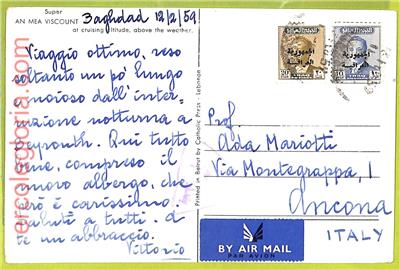 Super
AN MEA VISCOUNT
at cruising altitude, above the weather.
Baghdad 12/2/59
Viaggio ottimo, reso
soltanto un po' lungo
e noioso dall'inter-
ruzione notturna a
Beyrouth. Qui tutto
bene, compreso il
nuovo albergo, che
però è carissimo.
Saluti a tutti. A
te un abbraccio.
Vittorio
Printed in Beirut by Catholic Press - Lebanon
Prof.
Ada Mariotti
Via Montegrappa, 1
Ancona
ITALY
BY AIR MAIL
PAR AVION
الجمهورية
العراقية
الجمهورية
العراقية
stereologtorio.com